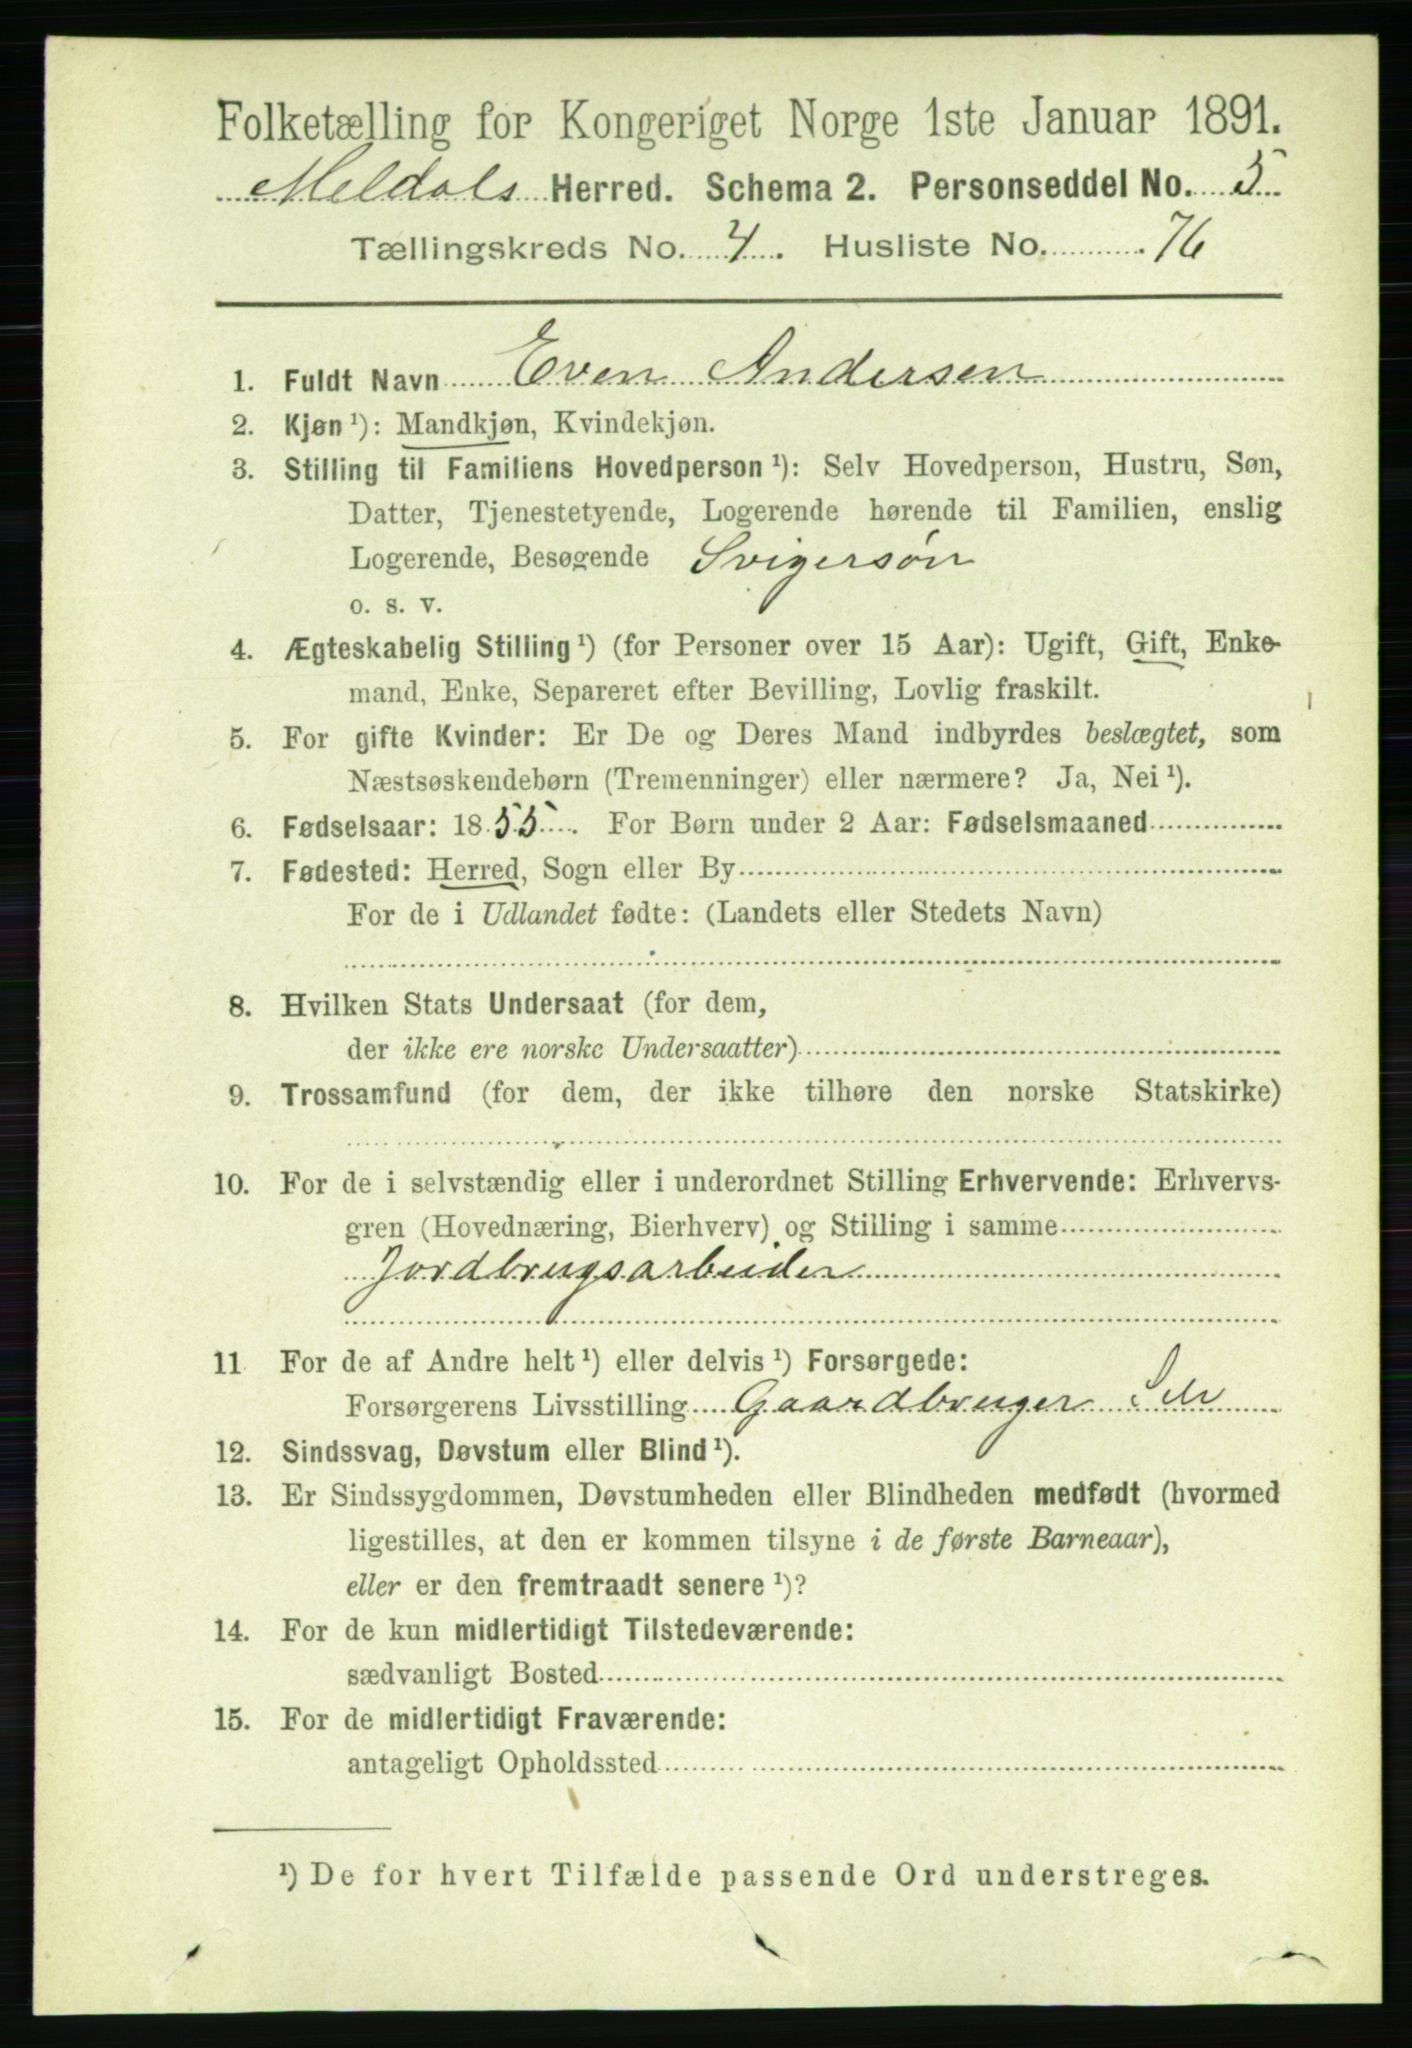 Folketælling for Kongeriget Norge 1ste Januar 1891.
Meldals Herred. Schema 2. Personseddel No. 5
Tællingskreds No. 4. Husliste No. 76
1. Fuldt Navn Even Andersen
2. Kjøn ¹): Mandkjøn, Kvindekjøn.
3. Stilling til Familiens Hovedperson ¹): Selv Hovedperson, Hustru, Søn,
Datter, Tjenestetyende, Logerende hørende til Familien, enslig
Logerende, Besøgende Svigersøn
o. s. v.
4. Ægteskabelig Stilling ¹) (for Personer over 15 Aar): Ugift, Gift, Enke-
mand, Enke, Separeret efter Bevilling, Lovlig fraskilt.
5. For gifte Kvinder: Er De og Deres Mand indbyrdes beslægtet, som
Næstsøskendebørn (Tremenninger) eller nærmere? Ja, Nei ¹).
6. Fødselsaar: 1855. For Børn under 2 Aar: Fødselsmaaned
7. Fødested: Herred, Sogn eller By
For de i Udlandet fødte: (Landets eller Stedets Navn)
8. Hvilken Stats Undersaat (for dem,
der ikke ere norske Undersaatter)
9. Trossamfund (for dem, der ikke tilhøre den norske Statskirke)
10. For de i selvstændig eller i underordnet Stilling Erhvervende: Erhvervs-
gren (Hovednæring, Bierhverv) og Stilling i samme
Jordbrugsarbeider
11 For de af Andre helt ¹) eller delvis ¹) Forsørgede:
Forsørgerens Livsstilling Gaardbruger
12. Sindssvag, Døvstum eller Blind ¹).
13. Er Sindssygdommen, Døvstumheden eller Blindheden medfødt (hvormed
ligestilles, at den er kommen tilsyne i de første Barneaar),
eller er den fremtraadt senere ¹)?
14. For de kun midlertidigt Tilstedeværende:
sædvanligt Bosted
15. For de midlertidigt Fraværende:
antageligt Opholdssted
¹) De for hvert Tilfælde passende Ord understreges.